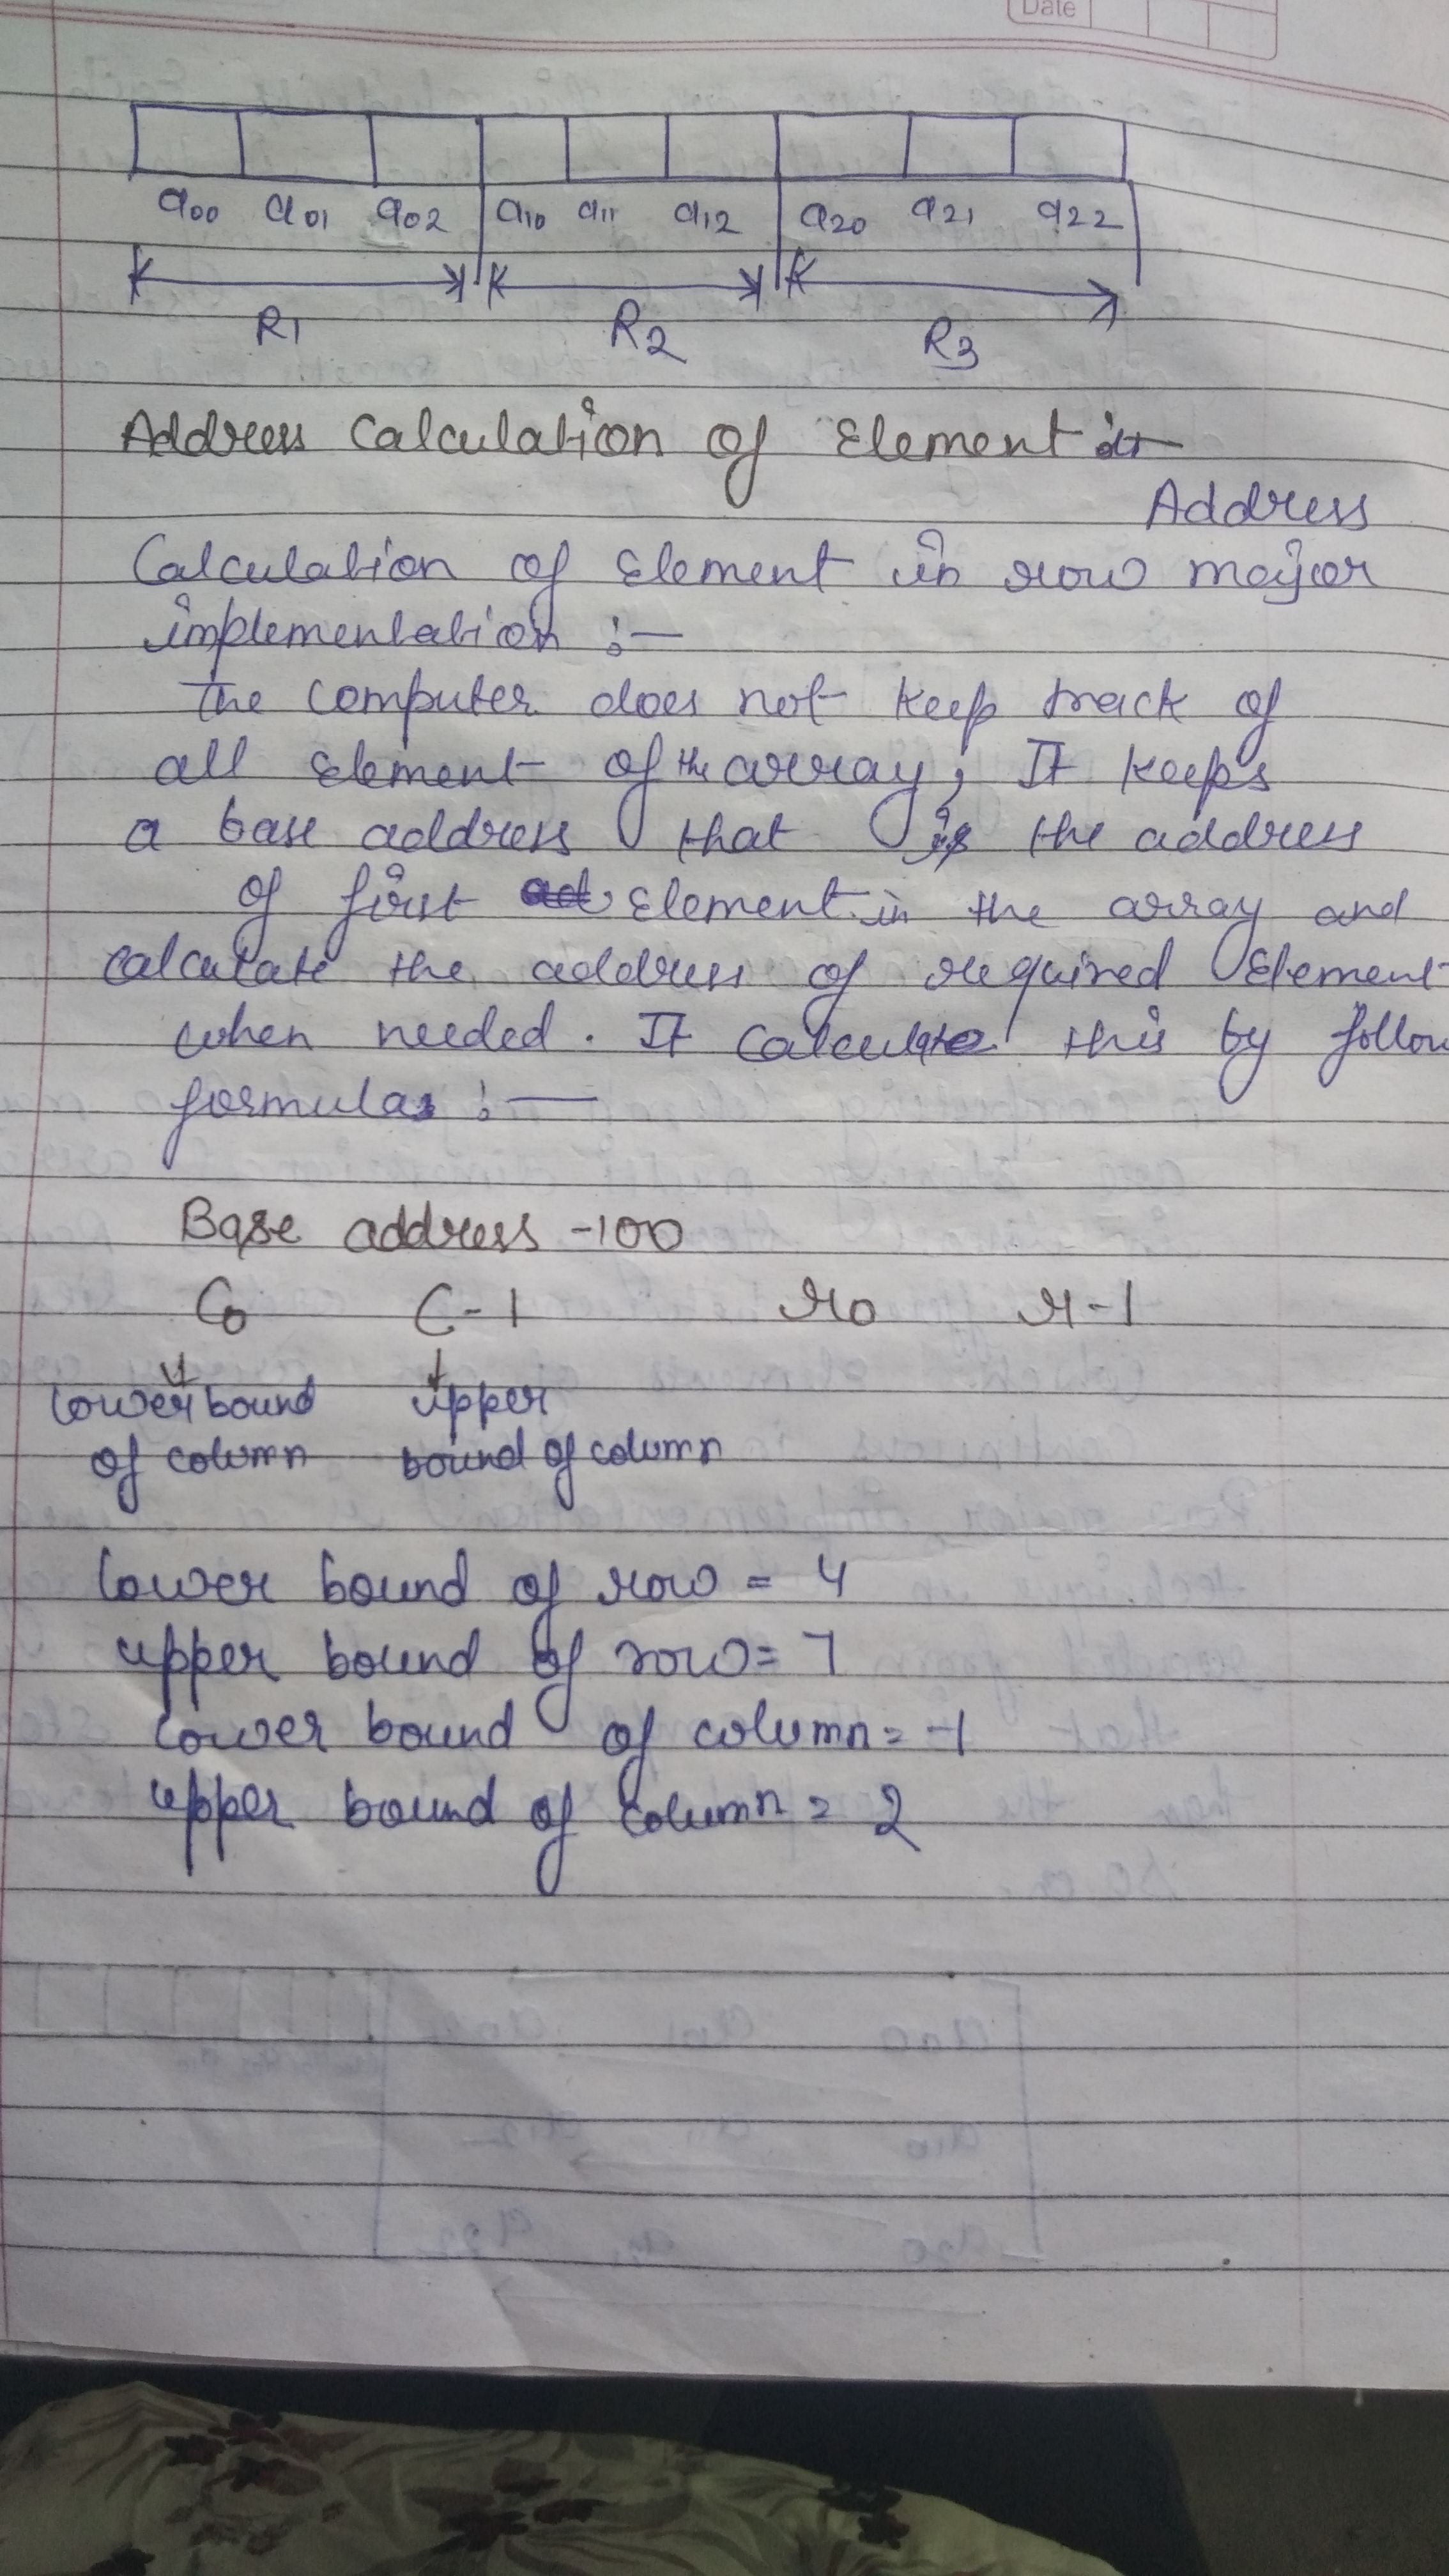 Date
a00 a01 a02 a10 a11 a12 a20 a21 a22
R1 R2 R3
Address Calculation of Element :-
Address
Calculation of Element in row major
implementation :—
The computer does not keep track of
all element of the array; It keeps
a base address that is the address
of first element in the array and
calculate the address of required Element
when needed. It calculate this by follow
formulas :—
Base address -100
C0 C-1 r0 r-1
lower bound upper
of column bound of column
lower bound of row = 4
upper bound of row = 7
lower bound of column = -1
upper bound of column = 2